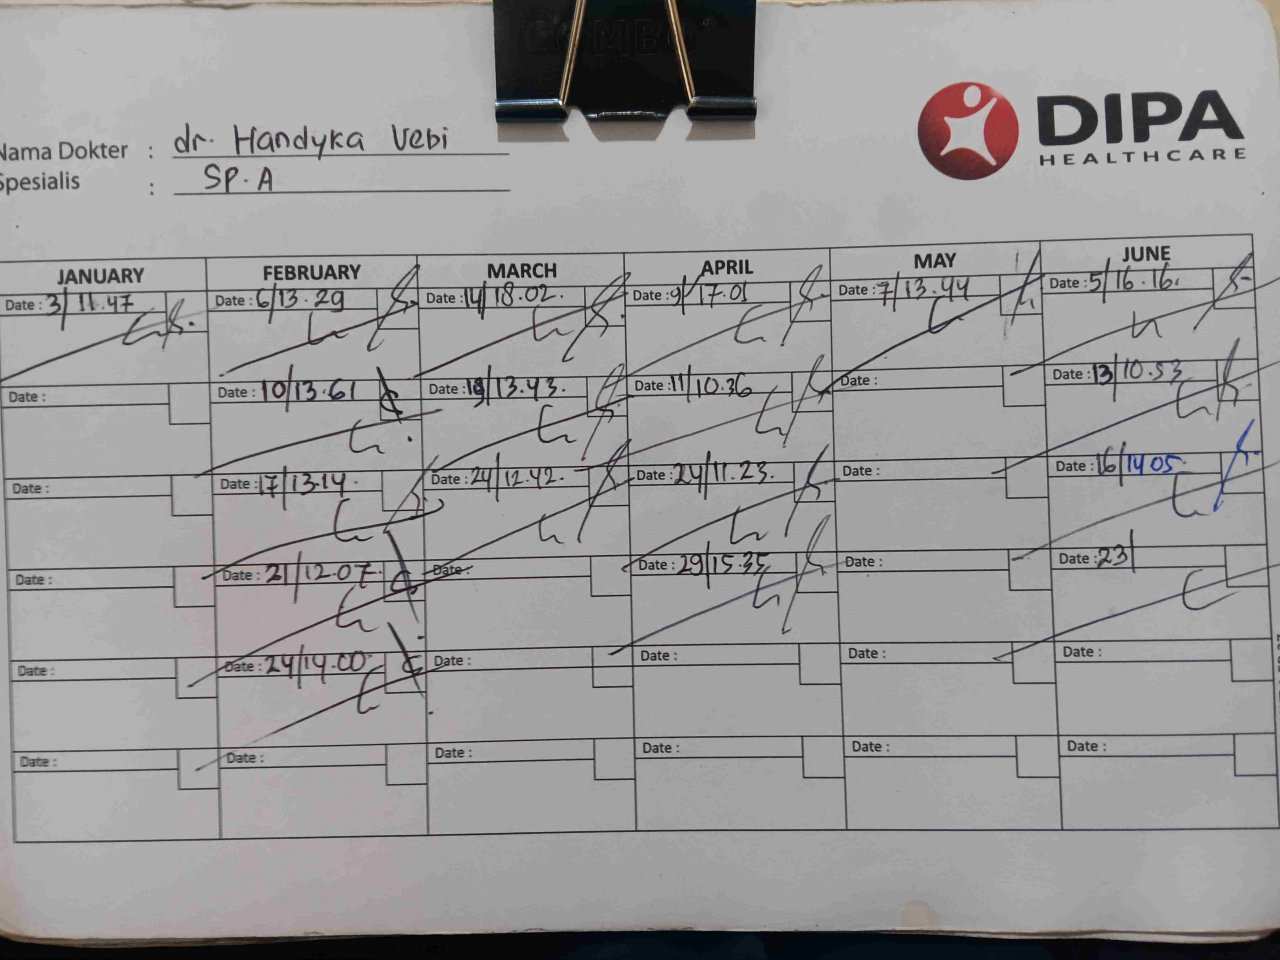 COMBO
DIPA
HEALTHCARE
Nama Dokter : dr. Handyka Vebi
Spesialis : SP.A
JANUARY FEBRUARY MARCH APRIL MAY JUNE
Date : 3/ 11.47 Date : 6/13.29 Date : 14/18.02. Date : 9/17.01 Date : 7/13.44 Date : 5/16.16.
Date : Date : 10/13.61 Date : 18/13.43. Date : 11/10.36 Date : Date : 13/10.53
Date : Date : 17/13.14. Date : 24/12.42. Date : 24/11.23. Date : Date : 16/14 05.
Date : Date : 21/12.07. Date : Date : 29/15.35 Date : Date : 23/
Date : Date : 24/14.00. Date : Date : Date : Date :
Date : Date : Date : Date : Date : Date :